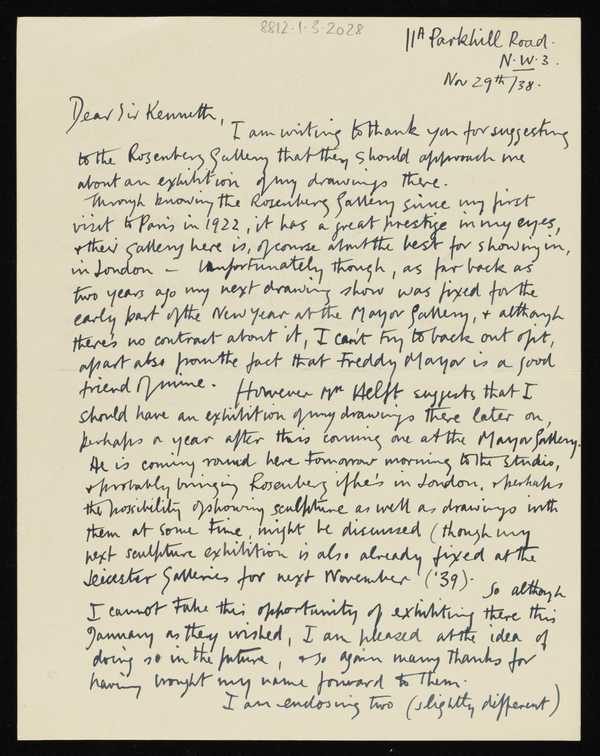 8812.1.3.2028
11A Parkhill Road.
N.W.3.
Nov 29th/38.
Dear Sir Kenneth,
I am writing to thank you for suggesting
to the Rosenberg Gallery that they should approach me
about an exhibition of my drawings there.
Through knowing the Rosenberg Gallery since my first
visit to Paris in 1922, it has a great prestige in my eyes,
& their gallery here is, of course about the best for showing in,
in London – Unfortunately though, as far back as
two years ago my next drawing show was fixed for the
early part of the New Year at the Mayor Gallery, & although
there's no contract about it, I can't try to back out of it,
apart also from the fact that Freddy Mayor is a good
friend of mine. However Mr Helft suggests that I
should have an exhibition of my drawings there later on,
perhaps a year after this coming one at the Mayor Gallery.
He is coming round here tomorrow morning to the studio,
& probably bringing Rosenberg if he's in London, & perhaps
the possibility of showing sculpture as well as drawings with
them at some time, might be discussed (though my
next sculpture exhibition is also already fixed at the
Leicester Galleries for next November ('39).
So although
I cannot take this opportunity of exhibiting there this
January as they wished, I am pleased at the idea of
doing so in the future, & so again many thanks for
having brought my name forward to them.
I am enclosing two (slightly different)